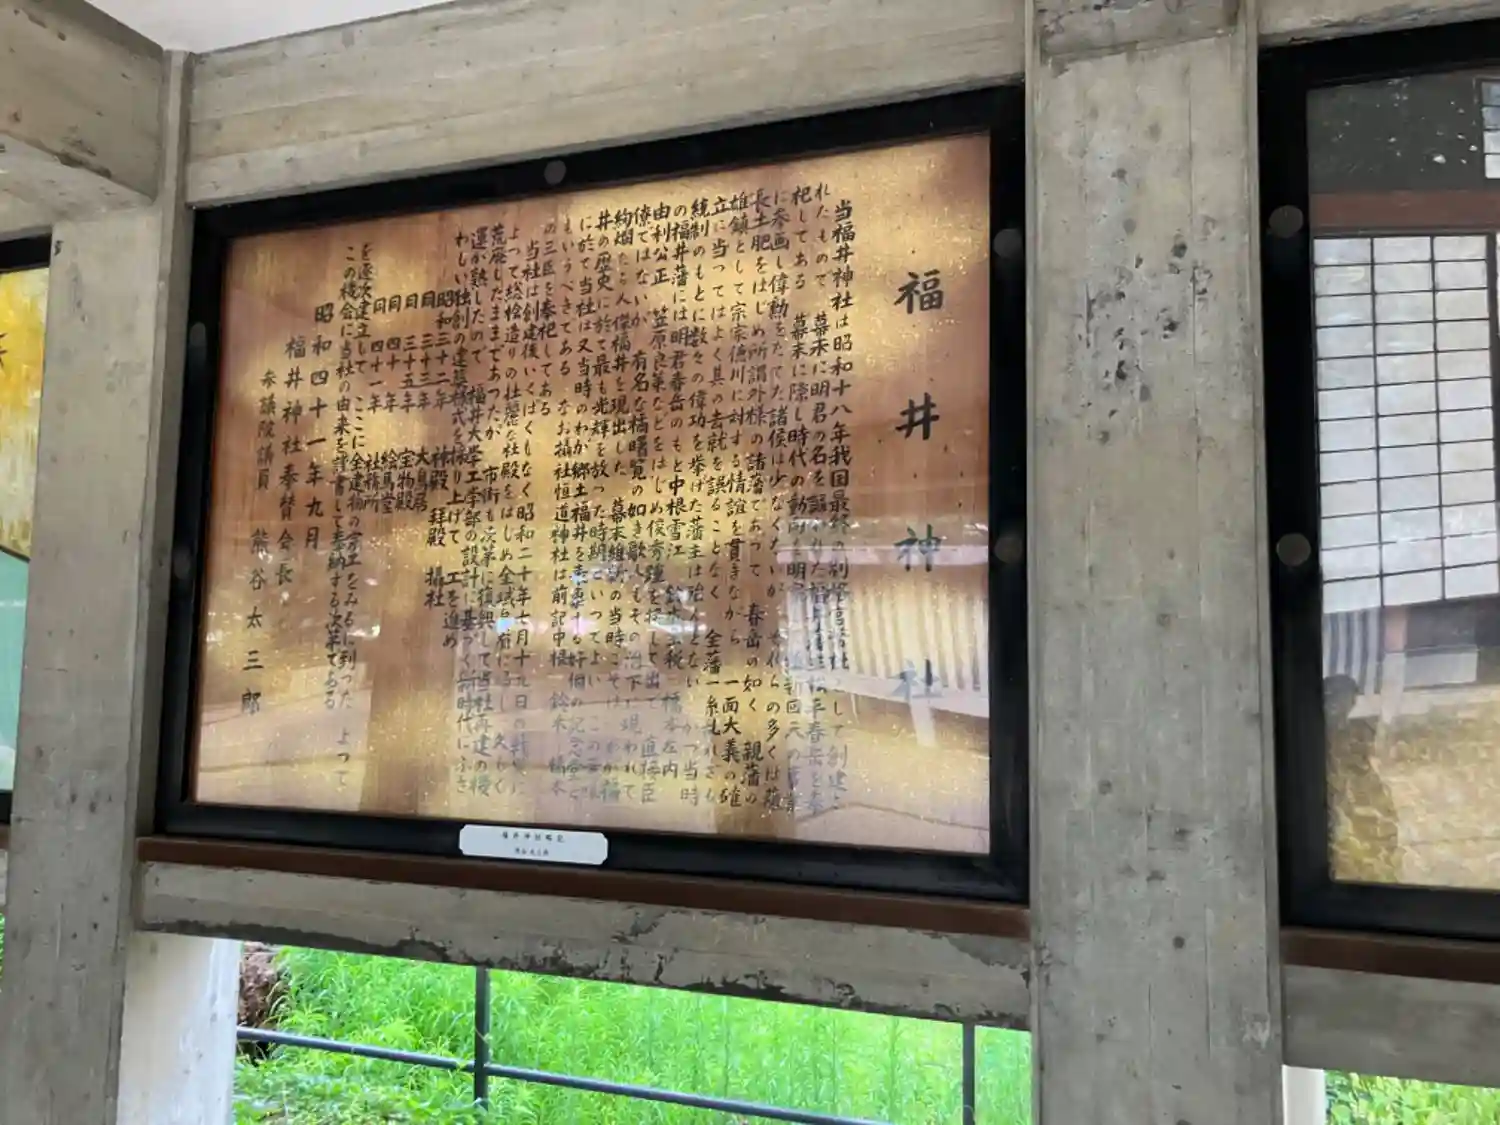 福井神社
当福井神社は昭和十八年我国最終の別格官幣社として創建さ
れたもので 幕末に明君の名を謳われた福井藩主松平春岳を奉
祀してある 幕末に際し時代の動向を明察し 維新回天の事業
に参画し偉勲をたてた諸侯は少なくないが かれらの多くは薩
長土肥をはじめ所謂外様の諸藩であつて 春岳の如く 親藩の
雄鎮として宗家徳川に対する情誼を貫きながら 一面大義の確
立に当つてはよく其の去就を誤ることなく 全藩一糸乱れざる
統制のもとに数々の偉功を挙げた藩主は殆んどない かつ当時
の福井藩には明君春岳のもと中根雪江 鈴木主税 橋本左内
由利公正 笠原良策などをはじめ俊秀踵を接して出で 直接臣
僚ではないが 有名な橘曙覧の如き歌人もその治下に現われて
絢爛たる人傑福井を現出した 幕末維新の当時こそは わが福
井の歴史に於て最も光輝を放つた時期といつてよい この意味
に於て当社は又当時のわが郷土福井を表車する好個の記念堂と
もいうべきである なお摂社恒道神社は前記中根 鈴木 橋本
の三臣を奉祀してある
当社は創建後いくばくもなく昭和二十年七月十九日の戦災に
よつて総桧造りの壮麗な社殿をはじめ全域烏有に帰し 久しく
荒廃したままであつたが 市街も次第に復興して当社再建の機
運が熟したので 福井大学工学部の設計に基づく新時代にふさ
わしい独創の建築様式を採り上げて 工を進め
昭和三十二年 神殿 拝殿 摂社
同 三十三年 大鳥居
同 三十五年 宝物殿
同 四十年 絵馬堂
同 四十一年 社務所
を逐次建立して ここに全建物の完工をみるに到つた よつて
この機会に当社の由来を謹書して奉納する次第である
昭和四十一年九月
福井神社奉賛会長
参議院議員 熊谷太三郎
福井神社略記